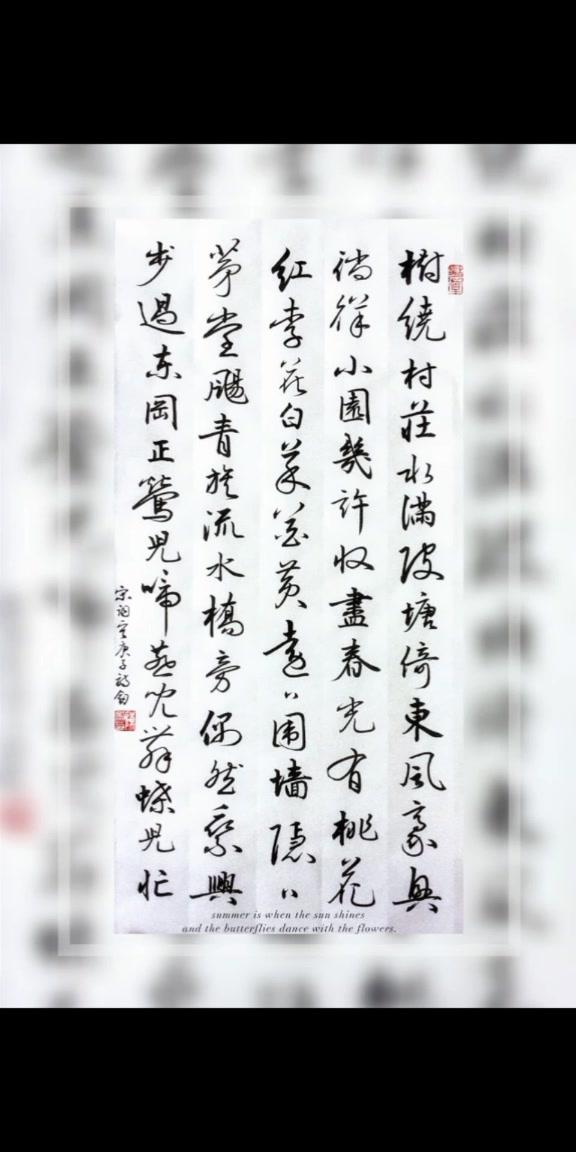 樹繞村莊水滿陂塘倚東風豪興
徜徉小園幾許收盡春光有桃花
红李花白菜花黄遠〻围墙隱〻
茅堂颺青旗流水橋旁偶然乘興
步過东岡正鶯兒啼燕兒舞蝶兒忙
宋词 庚子
summer is when the sun shines
and the butterflies dance with the flowers.